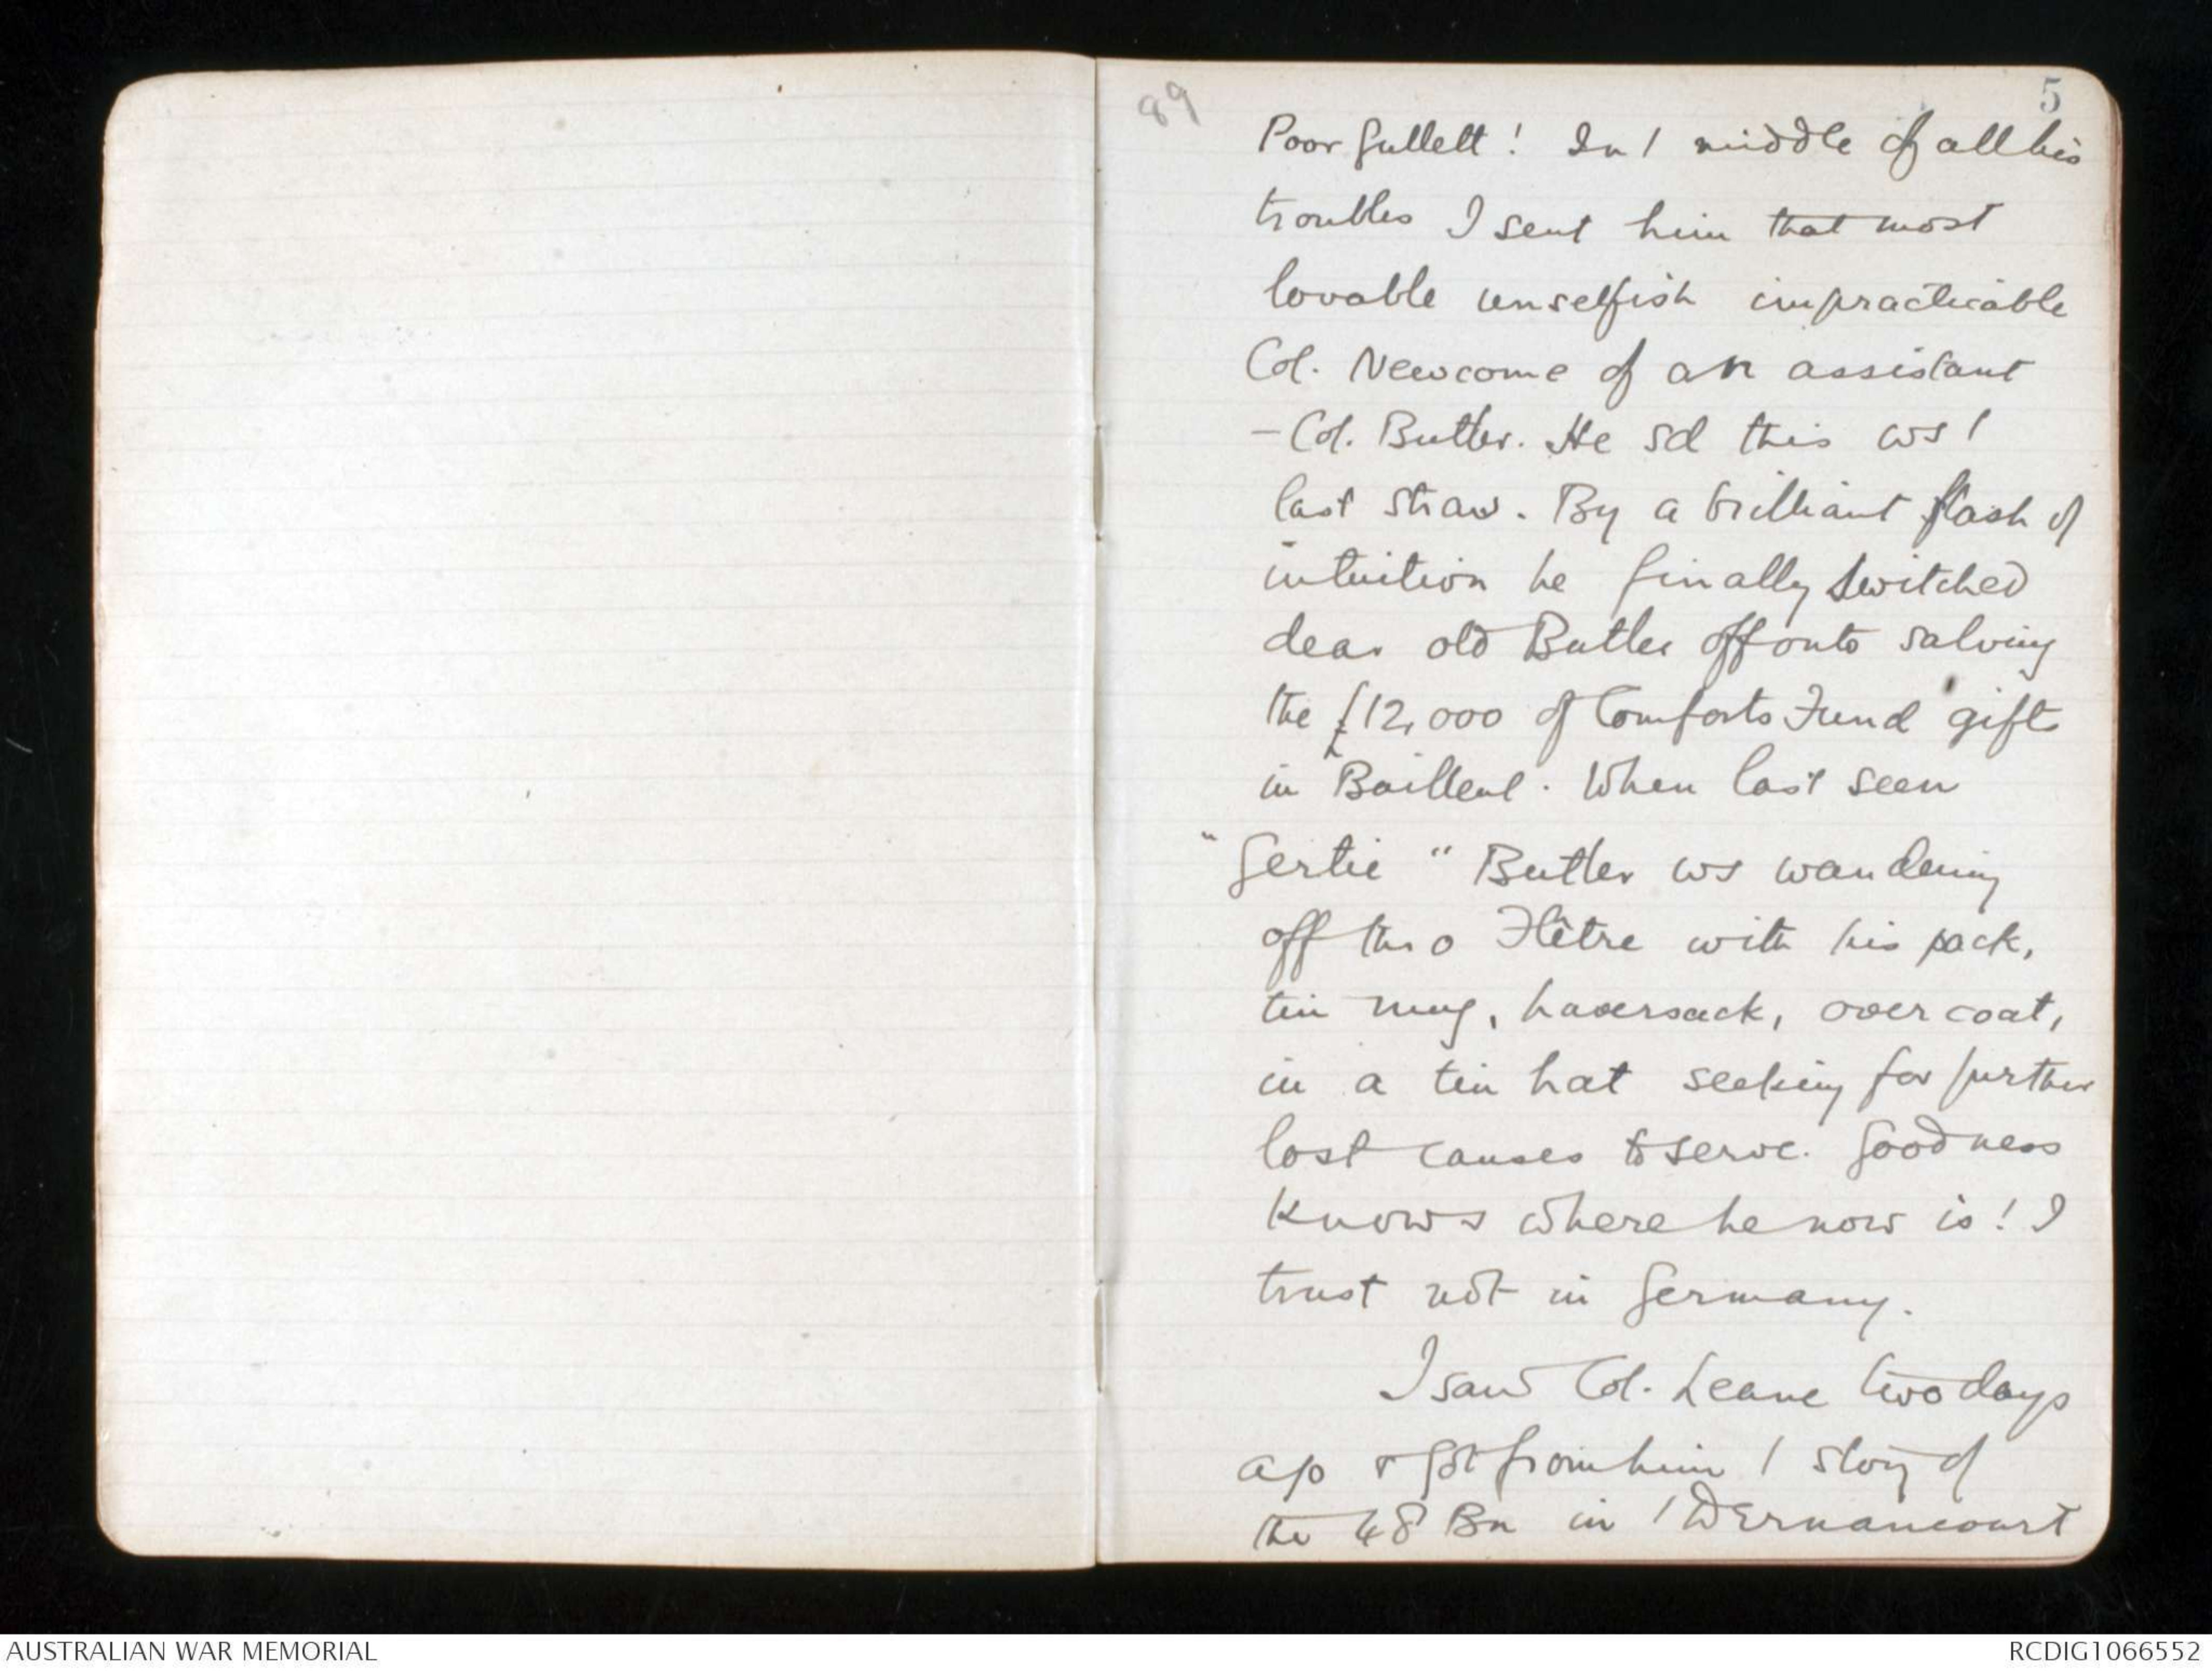 89
5
Poor Gullett! In / middle of all his
troubles I sent him that most
lovable unselfish impracticable
Col. Newcome of an assistant
- Col. Butler. He sd this ws /
last straw. By a brilliant flash of
intuition he finally switched
dear old Butler off onto salving
the £12,000 of Comforts Fund gifts
in Bailleul. When last seen
"Gertie" Butler ws wandering
off thro Flêtre with his pack,
tin mug, haversack, overcoat,
in a tin hat seeking for further
lost causes to serve. Goodness
knows where he now is! I
trust not in Germany.
I saw Col. Leane two days
ago & got from him / story of
the 48 Bn in / Dernancourt
AUSTRALIAN WAR MEMORIAL
RCDIG1066552